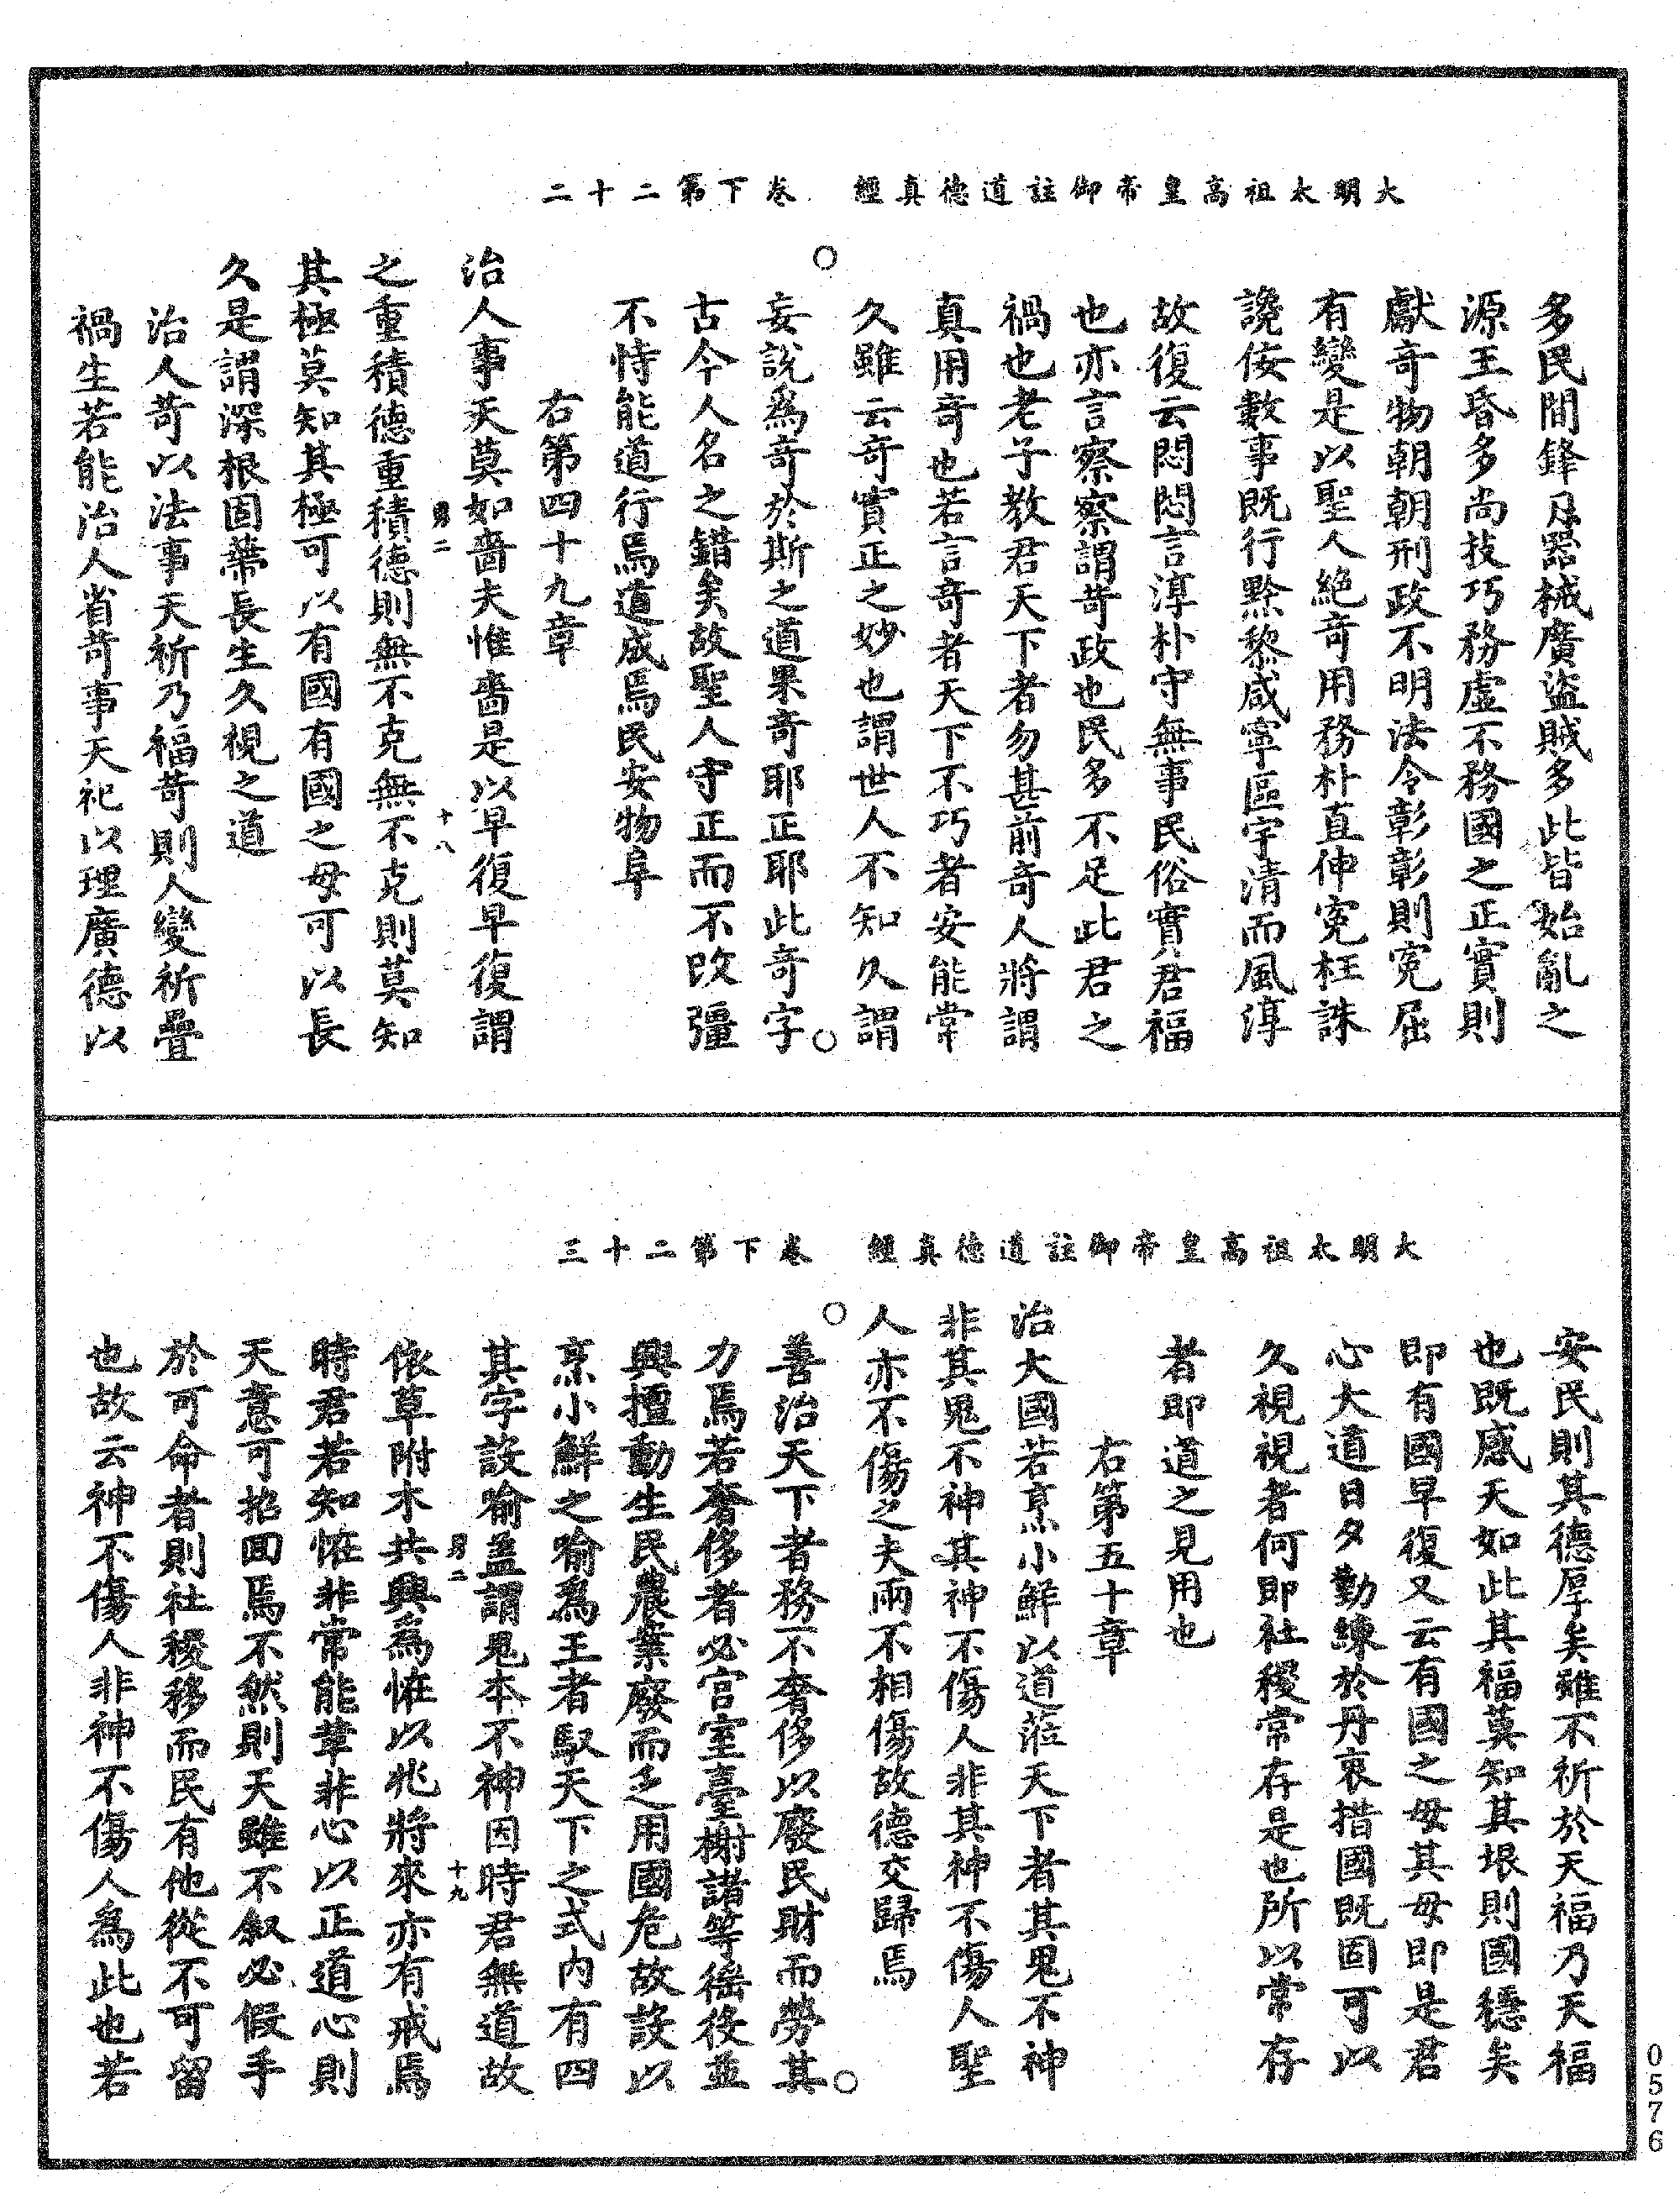 大明太祖高皇帝御註道德真經　卷下第二十二
多民間鋒刃器械廣盜賊多此皆始亂之
源王昏多尚技巧務虛不務國之正實則
獻奇物朝朝刑政不明法令彰彰則寃屈
有變是以聖人絕奇用務朴直伸寃枉誅
讒佞數事既行黔黎咸寧區宇清而風淳
故復云悶悶言淳朴守無事民俗實君福
也亦言察察謂苛政也民多不足此君之
禍也老子教君天下者勿甚前奇人將謂
真用奇也若言奇者天下不巧者安能常
久雖云奇實正之妙也謂世人不知久謂
妄說為奇於斯之道果奇耶正耶此奇字
古今人名之錯矣故聖人守正而不改彊
不恃能道行焉道成焉民安物阜
右第四十九章
治人事天莫如嗇夫惟嗇是以早復早復謂
男二　十八
之重積德重積德則無不克無不克則莫知
其極莫知其極可以有國有國之母可以長
久是謂深根固蔕長生久視之道
治人苛以法事天祈乃福苛則人變祈疊
禍生若能治人省苛事天祀以理廣德以
大明太祖高皇帝御註道德真經　卷下第二十三
安民則其德厚矣雖不祈於天福乃天福
也既感天如此其福莫知其垠則國穩矣
即有國早復又云有國之母其母即是君
心大道日夕勤練於丹衷措國既固可以
久視視者何即社稷常存是也所以常存
者即道之見用也
右第五十章
治大國若烹小鮮以道蒞天下者其鬼不神
非其鬼不神其神不傷人非其神不傷人聖
人亦不傷之夫兩不相傷故德交歸焉
善治天下者務不奢侈以廢民財而勞其
力焉若奢侈者必宮室臺榭諸等徭役並
興擅動生民農業廢而乏用國危故設以
烹小鮮之喻為王者馭天下之式內有四
其字設喻蓋謂鬼本不神因時君無道故
男二　十九
依草附木共興為怪以兆將來亦有戒焉
時君若知怪非常能革非心以正道心則
天意可招回焉不然則天雖不叙必假手
於可命者則社稷移而民有他從不可留
也故云神不傷人非神不傷人為此也若
0576